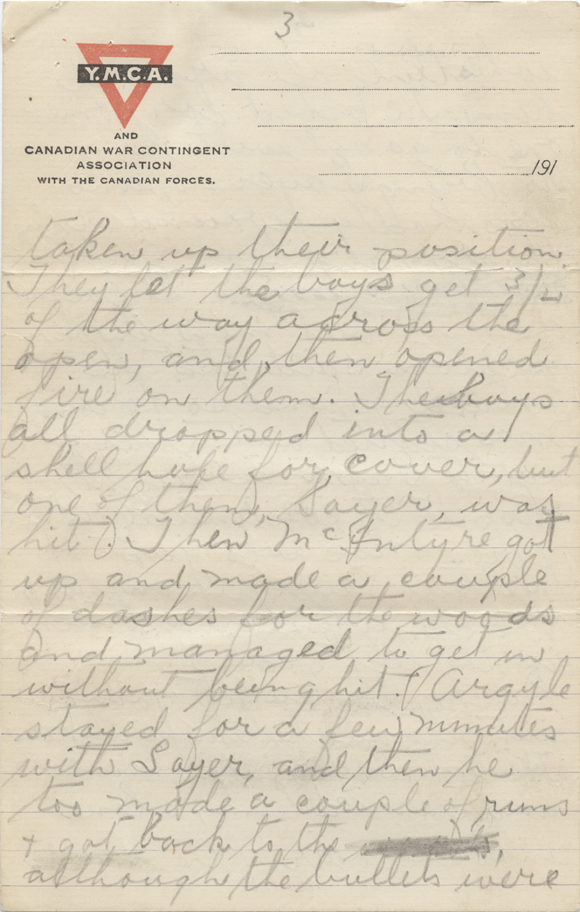 3
Y.M.C.A.
AND
CANADIAN WAR CONTINGENT
ASSOCIATION
WITH THE CANADIAN FORCES.
191
taken up their position
They let the boys get 3/4
of the way across the
open, and then opened
fire on them. The boys
all dropped into a
shell hole for cover, but
one of them, Sayer, was
hit. Then McIntyre got
up and made a couple
of dashes for the woods
and managed to get in
without being hit. Argyle
stayed for a few minutes
with Sayer, and then he
too made a couple of runs
+ got back to the
although the bullets were